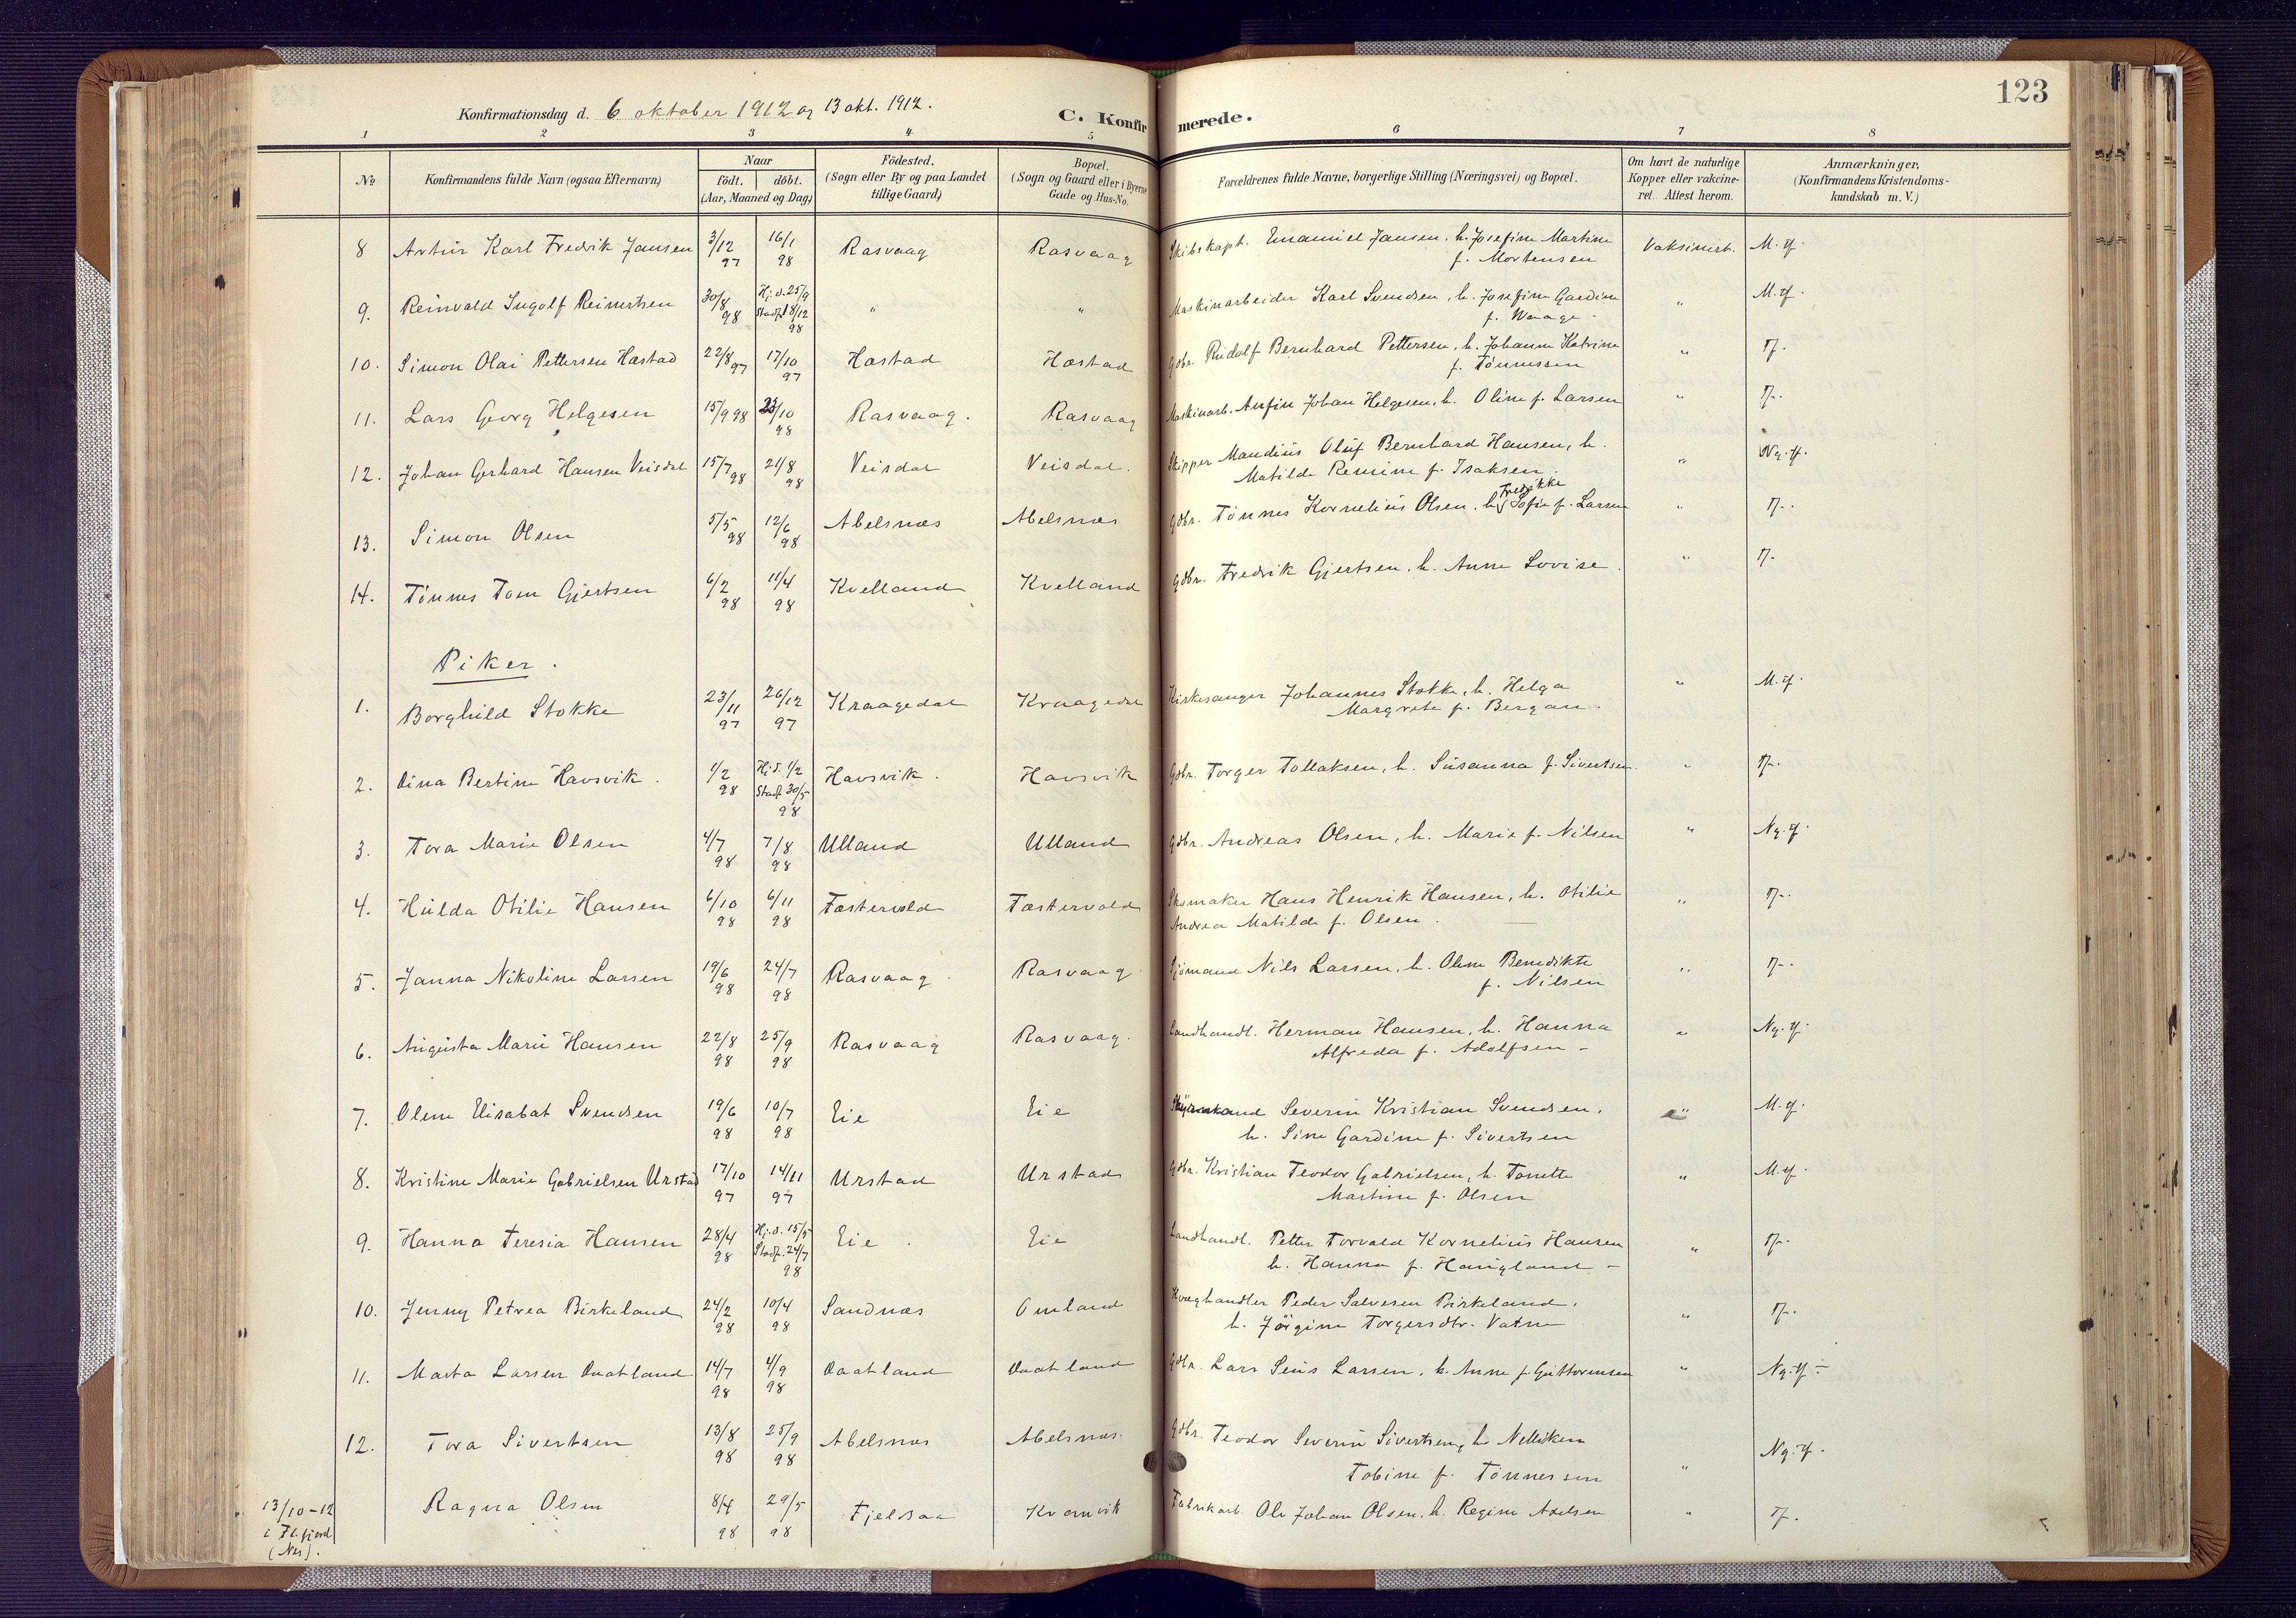 123
Konfirmationsdag d. 6 oktober 1912 og 13 okt. 1912.
C. Konfirmerede.
1 2 3 4 5 6 7 8
No
Konfirmandens fulde Navn (ogsaa Efternavn)
Naar
født. døbt.
(Aar, Maaned og Dag)
Fødested.
(Sogn eller By og paa Landet
tillige Gaard)
Bopæl.
(Sogn og Gaard eller i Byerne
Gade og Hus-No.
Forældrenes fulde Navne, borgerlige Stilling (Næringsvei) og Bopæl.
Om havt de naturlige
Kopper eller vakcine-
ret. Attest herom.
Anmærkninger.
(Konfirmandens Kristendoms-
kundskab m. V.)
8 Artur Karl Fredrik Jansen 3/12 97 16/1 98 Rasvaag Rasvaag Skibskapt. Emanuel Jansen, h. Josefine Martine
f. Mortensen Vaksinert. M. tf.
9. Reinvald Ingolf Reinertsen 30/8 98 Hj. d. 25/9 Stadf. 18/12 98 " " Maskinarbeider Karl Svendsen, h. Josefine Gardine
f. Waage " M. tf.
10. Simon Olai Pettersen Hæstad 22/8 97 17/10 97 Hæstad Hæstad Gdbr. Rudolf Bernhard Pettersen, h. Johanne Katrine
f. Tønnessen " T.
11. Lars Georg Helgesen 15/9 98 23/10 98 Rasvaag. Rasvaag Maskinarb. Anfin Johan Helgesen, h. Oline f. Larsen " T.
12. Johan Gerhard Hansen Veisdal 15/7 98 21/8 98 Veisdal Veisdal. Skipper Maudius Oluf Bernhard Hansen, h.
Matilde Remine f. Isaksen. " Ng. tf.
13. Simon Olsen 5/5 98 12/6 98 Abelsnæs Abelsnæs Gdbr. Tønnes Kornelius Olsen, h. Fredrikke Sofie f. Larsen " T.
14. Tønnes Tom Gjertsen 6/2 98 11/4 98 Kvelland Kvelland Gdbr. Fredrik Gjertsen, h. Anne Lovise. " T.
Piker.
1. Borghild Stokke 23/11 97 26/12 97 Kraagedal Kraagedal Kirkesanger Johannes Stokke, h. Helga
Margrete f. Bergan. " M. tf.
2. Dina Bertine Havsvik. 1/2 98 Hj. d. 1/2 Stadf. 30/5 98 Havsvik. Havsvik Gdbr. Torger Tollaksen, h. Susanna f. Sivertsen. " T.
3. Tora Marie Olsen 4/7 98 7/8 98 Ulland Ulland Gdbr. Andreas Olsen, h. Marie f. Nilsen " Ng. tf.
4. Hulda Otilie Hansen 6/10 98 6/11 98 Tæstervold Tæstervold Skomaker Hans Henrik Hansen, h. Otilie
Andrea Matilde f. Olsen. " T.
5. Janna Nikoline Larsen 19/6 98 24/7 98 Rasvaag Rasvaag Sjømand Nils Larsen, h. Olene Benedikte
f. Nilsen " T.
6. Augusta Marie Hansen 22/8 98 25/9 98 Rasvaag Rasvaag. Landhandl. Herman Hansen, h. Hanna
Alfreda f. Adolfsen - " Ng. tf.
7. Olene Elisabat Svendsen 19/6 98 10/7 98 Eie Eie Severin Kristian Svendsen,
h. Sine Gardine f. Sivertsen " M. tf.
8. Kristine Marie Gabrielsen Urstad 17/10 97 14/11 97 Urstad Urstad Gdbr. Kristian Teodor Gabrielsen, h. Tonette
Martine f. Olsen " M. tf.
9. Hanna Teresia Hansen 28/4 98 Hj. d. 15/5 Stadf. 24/7 98 Eie Eie Landhandl. Petter Torvald Kornelius Hansen
h. Hanna f. Haugland - " T.
10. Jenny Petrea Birkeland 24/2 98 10/4 98 Sandnæs Omland Kvæghandler Peder Salvesen Birkeland,
h. Jørgine Torgersdtr. Vatne " T.
11. Marta Larsen Daatland 14/7 98 4/9 98 Daatland Daatland Gdbr. Lars Seus Larsen, h. Anne f. Guttormsen " Ng. tf. -
12. Tora Sivertsen 13/8 98 25/9 98 Abelsnæs Abelsnæs. Gdbr. Teodor Severin Sivertsen, h. Nelliken
Tobine f. Tønnessen " Ng. tf.
13/10-12
i Fl. fjord
(Nes). Ragna Olsen 8/4 98 29/5 98 Fjeldsaa Kvanvik Fabrikarb. Ole Johan Olsen, h. Regine Axelsen " T.